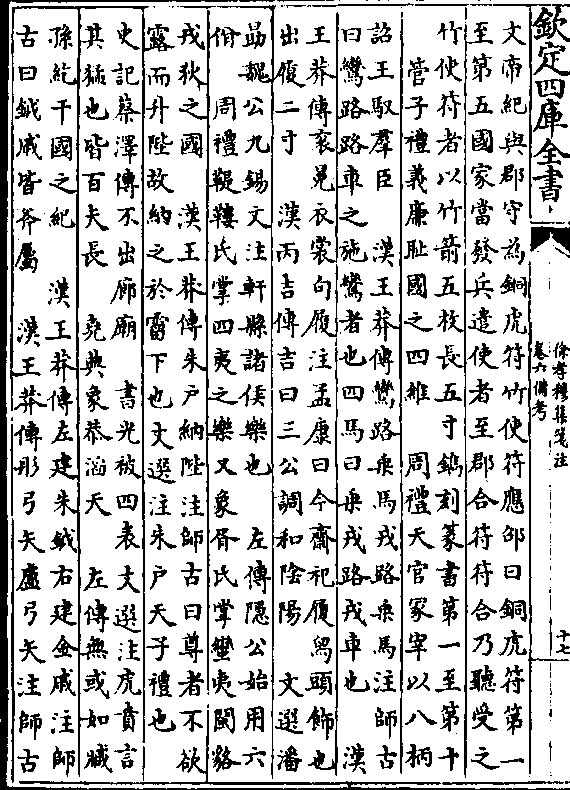 欽定四庫全書
徐孝穆集箋注
卷六備考
十七
文帝紀與郡守為銅虎符竹使符應邵曰銅虎符第一
至第五國家當發兵遣使者至郡合符符合乃聽受之
竹使符者以竹箭五枚長五寸鐫刻篆書第一至第十
管子禮義廉耻國之四維　周禮天官冢宰以八柄
詔王馭羣臣　漢王莽傳鸞路乘馬戎路乘馬注師古
曰鸞路路車之施鸞者也四馬曰乘戎路戎車也　漢
王莽傳衮冕衣裳句履注孟康曰今齋祀履舄頭飾也
出履二寸　漢丙吉傳吉曰三公調和陰陽　文選潘
勗魏公九錫文注軒縣諸侯樂也　左傳隱公始用六
佾　周禮鞮鞻氏掌四夷之樂又象胥氏掌蠻夷閩貉
戎狄之國　漢王莽傳朱戶納陛注師古曰尊者不欲
露而升陛故納之於霤下也文選注朱戶天子禮也
史記蔡澤傳不出廊廟　書光被四表文選注虎賁言
其猛也皆百夫長　堯典象恭滔天　左傳無或如臧
孫紇干國之紀　漢王莽傳左建朱鉞右建金戚注師
古曰鉞戚皆斧屬　漢王莽傳彤弓矢盧弓矢注師古